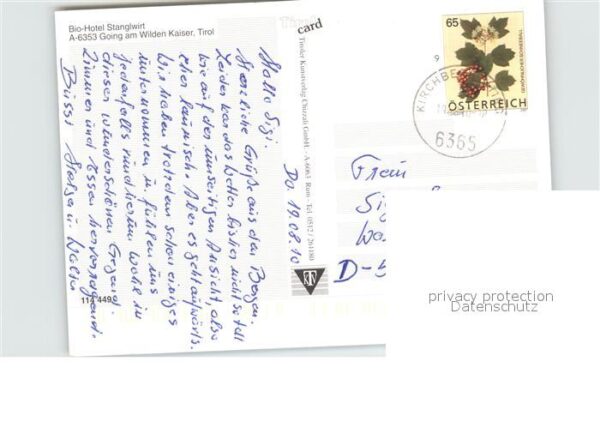 Bio-Hotel Stanglwirt
A-6353 Going am Wilden Kaiser, Tirol
Hallo Sigi.
Herzliche Grüße aus den Bergen.
Leider war das Wetter bisher nicht so toll
wie auf der umseitigen Ansicht, also
eher launisch. Aber es geht aufwärts.
Wir haben trotzdem schon einiges
unternommen u. fühlen uns
jedenfalls rundherum wohl in
dieser wunderschönen Gegend.
Zimmer und Essen hervorragend.
Bussi
114 449
card
Tiroler Kunstverlag Chizzali GmbH. - A-6063 Rum - Tel. 0512 / 264180
Do. 19.08.10
KT
9
65
ÖSTERREICH
KIRCHBE
6365
Frau
Sig
Wa
D-5
privacy protection
Datenschutz